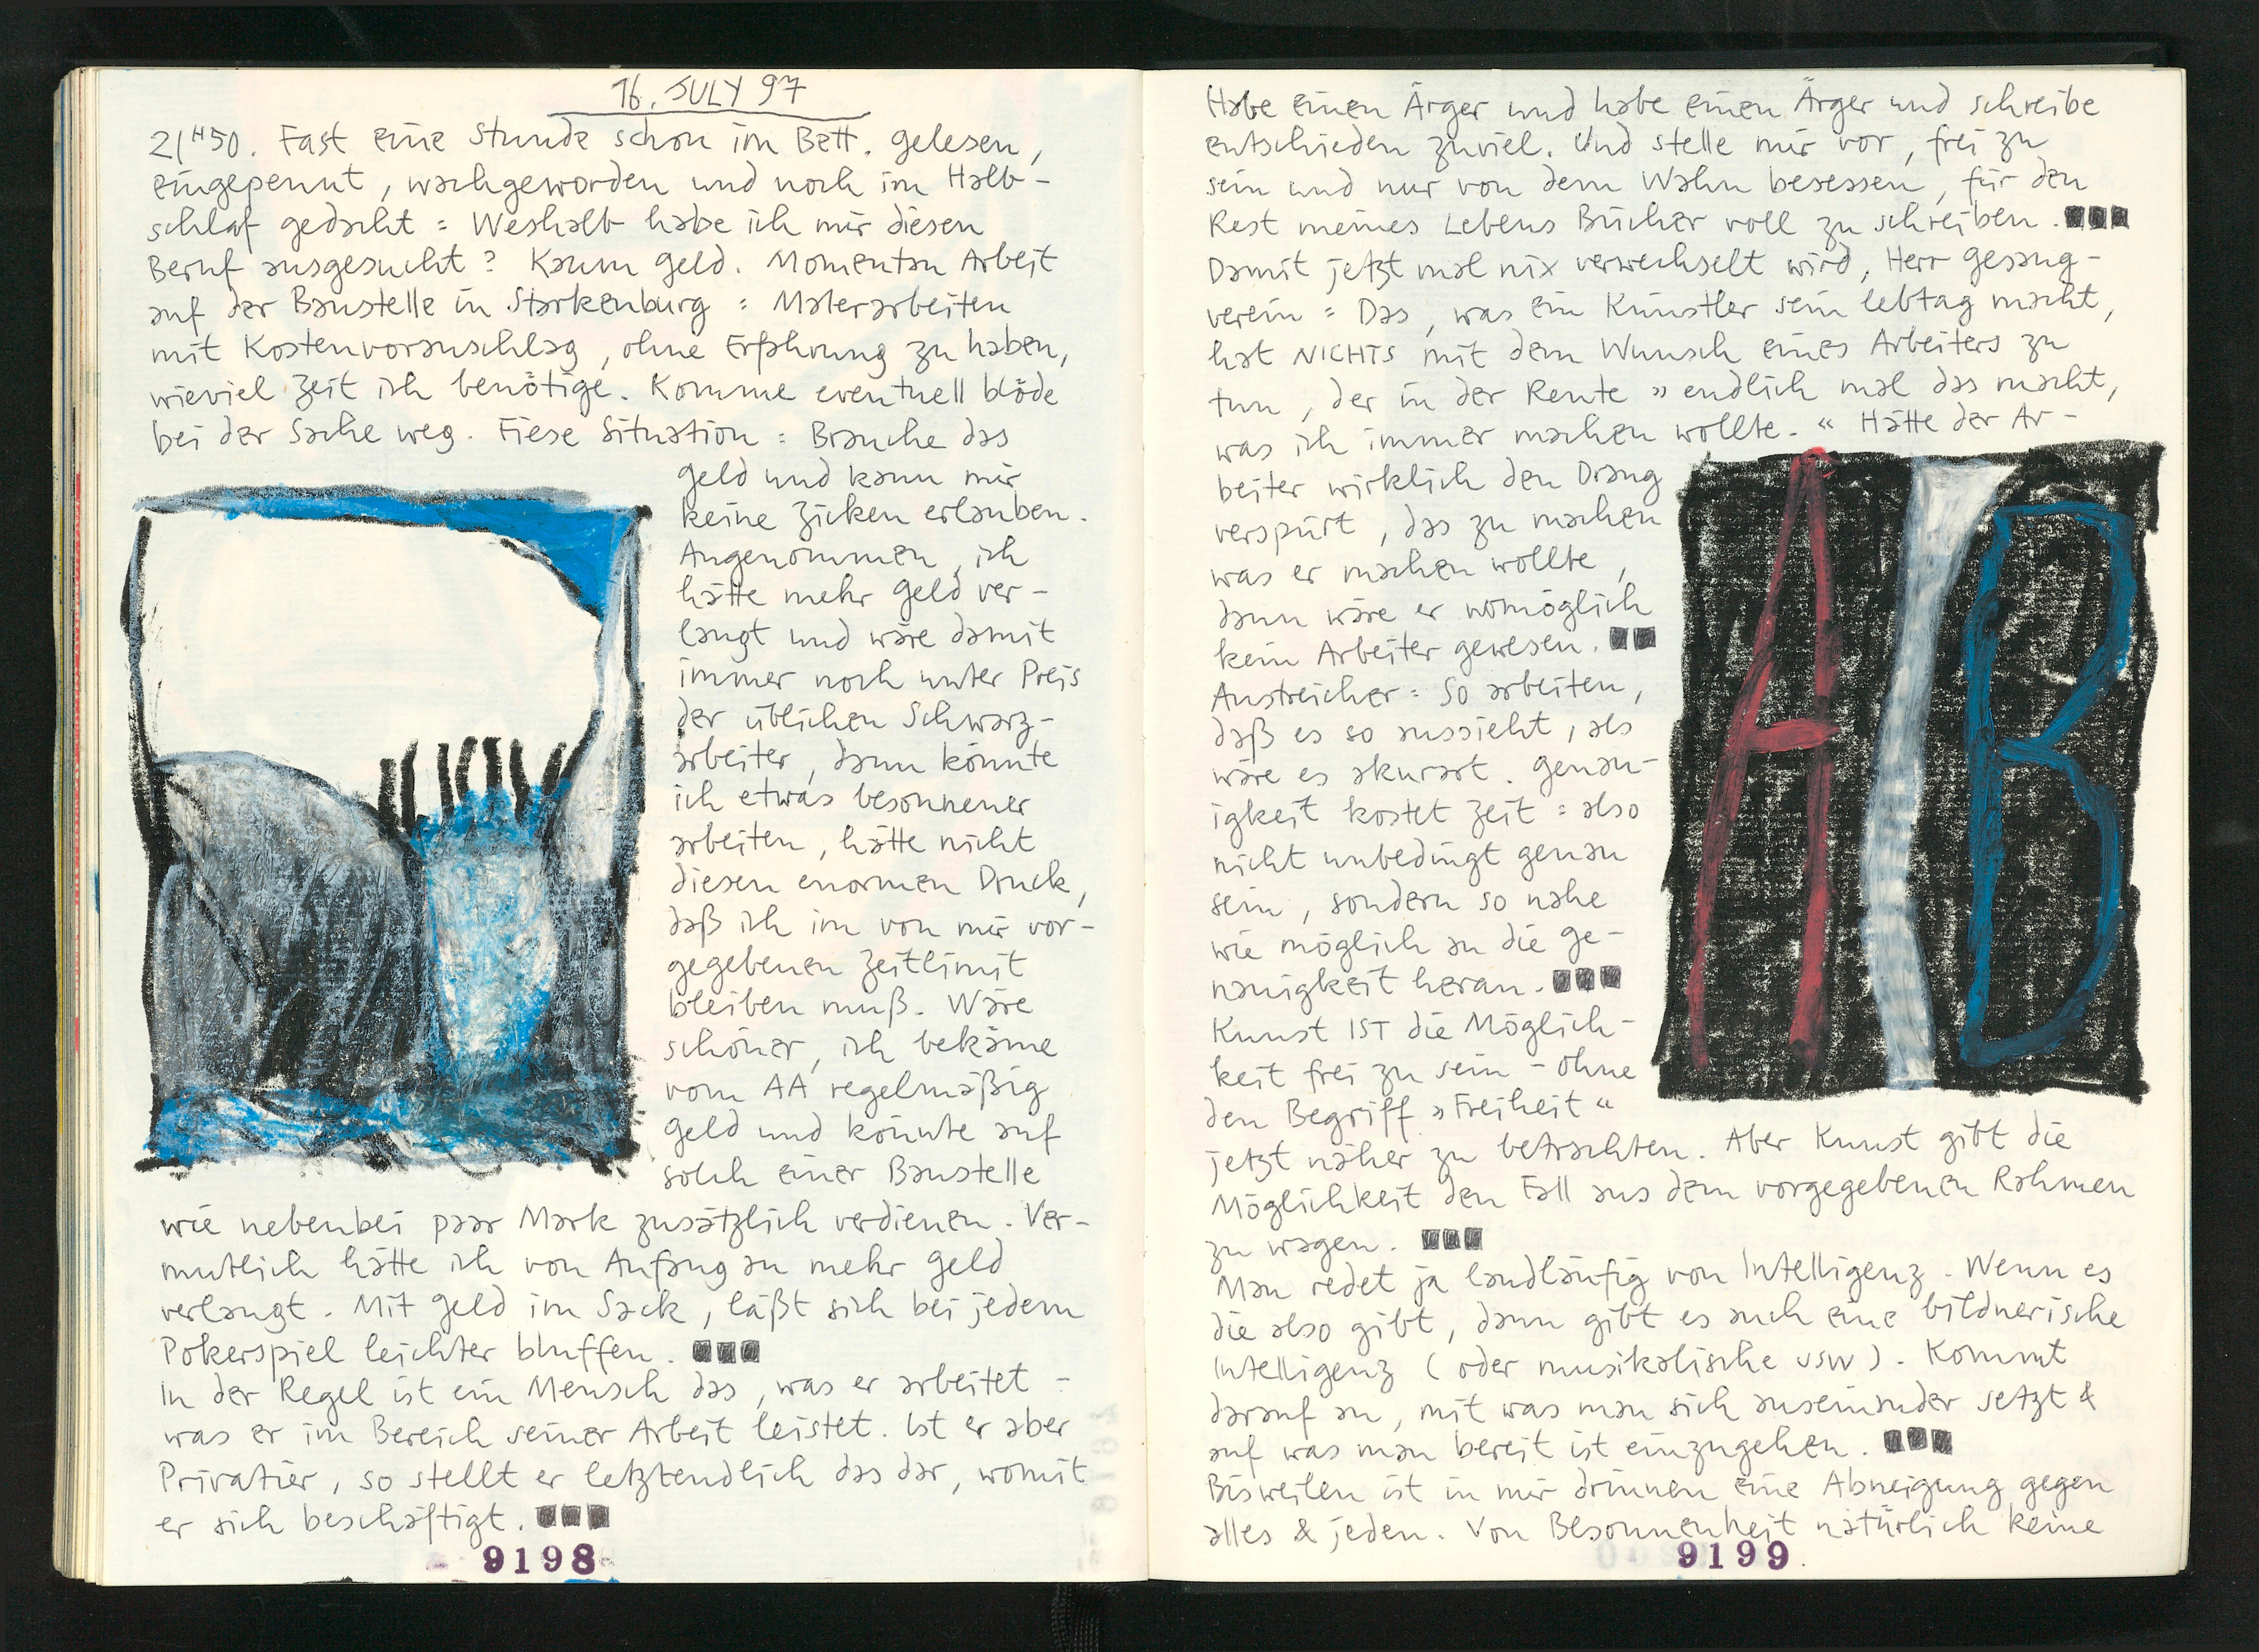 16. JULY 97
21H50. Fast eine Stunde schon im Bett. gelesen,
eingepennt, wachgeworden und noch im Halb-
schlaf gedacht: Weshalb habe ich mir diesen
Beruf ausgesucht? Kaum Geld. Momentan Arbeit
auf der Baustelle in Starkenburg: Malerarbeiten
mit Kostenvoranschlag, ohne Erfahrung zu haben,
wieviel Zeit ich benötige. Komme eventuell blöde
bei der Sache weg. Fiese Situation: Brauche das
Geld und kann mir
keine Zicken erlauben.
Angenommen, ich
hätte mehr Geld ver-
langt und wäre damit
immer noch unter Preis
der üblichen Schwarz-
arbeiter, dann könnte
ich etwas besonnener
arbeiten, hätte nicht
diesen enormen Druck,
daß ich im von mir vor-
gegebenen Zeitlimit
bleiben muß. Wäre
schöner, ich bekäme
vom AA regelmäßig
Geld und könnte auf
solch einer Baustelle
wie nebenbei paar Mark zusätzlich verdienen. Ver-
mutlich hätte ich von Anfang an mehr Geld
verlangt. Mit Geld im Sack, läßt sich bei jedem
Pokerspiel leichter bluffen.
In der Regel ist ein Mensch das, was er arbeitet -
was er im Bereich seiner Arbeit leistet. Ist er aber
Privatier, so stellt er letztendlich das dar, womit
er sich beschäftigt.
9198
Habe einen Ärger und habe einen Ärger und schreibe
entschieden zuviel. Und stelle mir vor, frei zu
sein und nur von dem Wahn besessen, für den
Rest meines Lebens Bücher voll zu schreiben.
Damit jetzt mal nix verwechselt wird, Herr Gesang-
verein: Das, was ein Künstler sein lebtag macht,
hat NICHTS mit dem Wunsch eines Arbeiters zu
tun, der in der Rente »endlich mal das macht,
was ich immer machen wollte.« Hätte der Ar-
beiter wirklich den Drang
verspürt, das zu machen
was er machen wollte,
dann wäre er womöglich
kein Arbeiter gewesen.
Anstreicher: So arbeiten,
daß es so aussieht, als
wäre es akurart. Genau-
igkeit kostet Zeit: also
nicht unbedingt genau
sein, sondern so nahe
wie möglich an die Ge-
nauigkeit heran.
Kunst IST die Möglich-
keit frei zu sein - ohne
den Begriff »Freiheit«
jetzt näher zu betrachten. Aber Kunst gibt die
Möglichkeit den Fall aus dem vorgegebenen Rahmen
zu wagen.
Man redet ja landläufig von Intelligenz. Wenn es
die also gibt, dann gibt es auch eine bildnerische
Intelligenz (oder musikalische usw). Kommt
darauf an, mit was man sich auseinander setzt &
auf was man bereit ist einzugehen.
Bisweilen ist in mir drinnen eine Abneigung gegen
alles & jeden. Von Besonnenheit natürlich keine
9199
A B